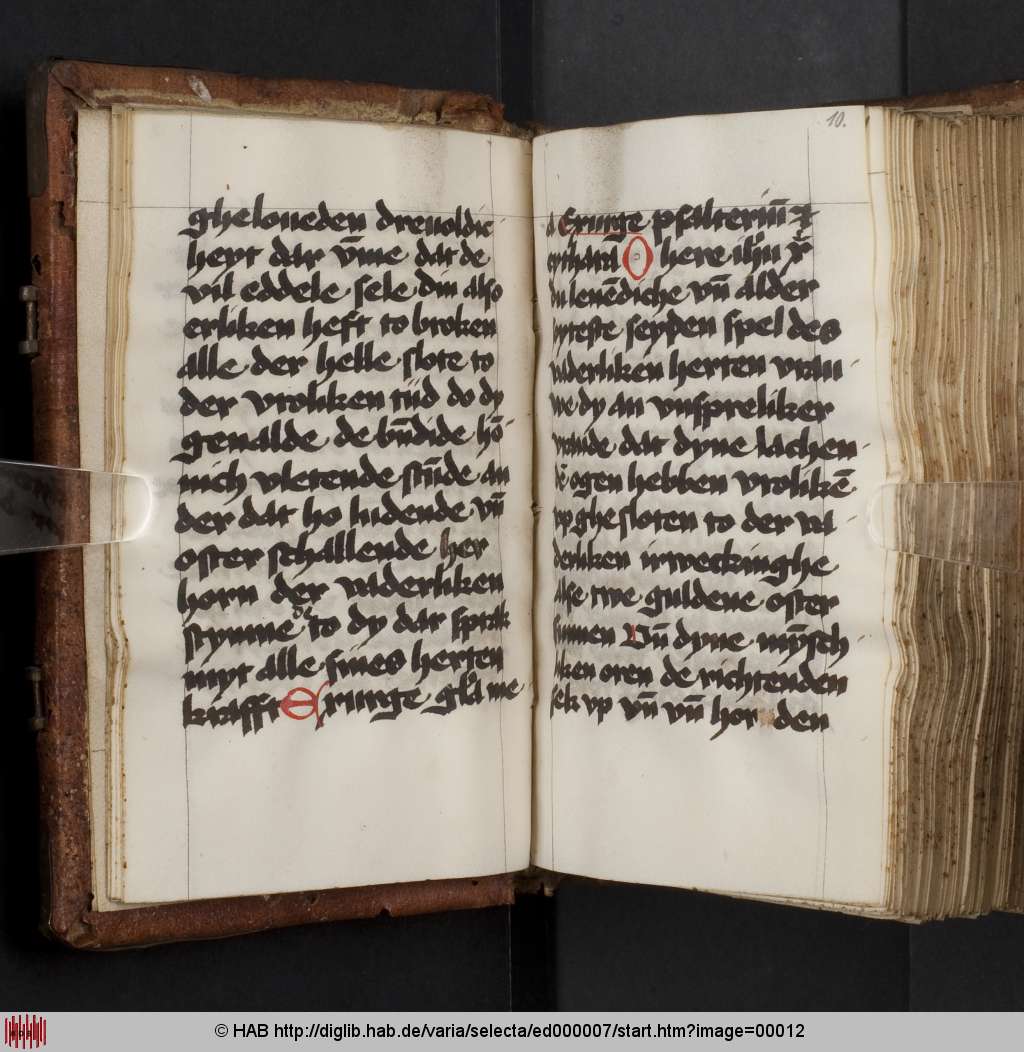 gheloueden dreuoldic
heyt dar vm̄e dat de
vil eddele sele din also
erliken heft to broken
alle der helle slote to
der vroliken tiid do dy
genalde de bu̅dide hō
nich vletende stu̅de an
der dat ho ludende vn̄
oster schallende her
horn der vaderliken
stymme de to dy dar sprak
myt alle sines herten
krafft Exurge gl̓a me
10.
a Exurge psalteriu̅ &
cythara̅ O here ih̓u xp̄e
du leue̅diche vn̄ alder
soyteste seyden spel des
vaderliken herten vrau
we dy an vnspreliker
vraude dat dyne lachen
de̅ ogen hebben vrolike̅
vp ghesloten to der va
derliken irweckinghe
alse twe guldene oster
sunnen Vn̄ dyne mȳsch
liken oren de richtenden
sek vp vn̄ vn̄ hor den
© HAB http://diglib.hab.de/varia/selecta/ed000007/start.htm?image=00012